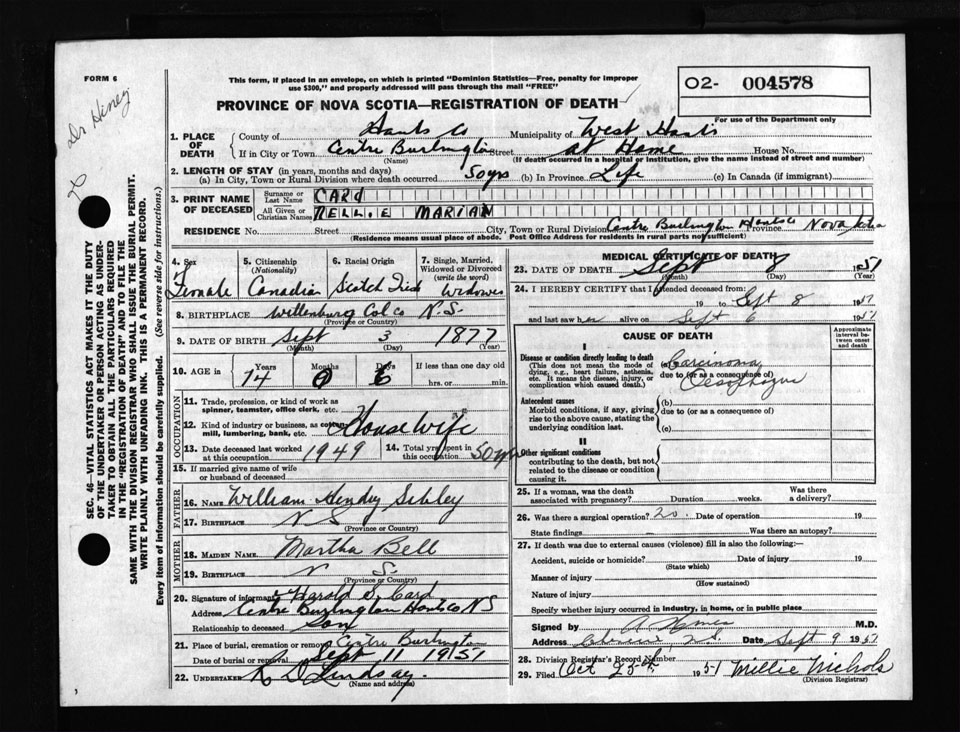 FORM 6
This form, if placed in an envelope, on which is printed "Dominion Statistics—Free, penalty for improper
use $300," and properly addressed will pass through the mail "FREE"
PROVINCE OF NOVA SCOTIA—REGISTRATION OF DEATH
O2- 004578
For use of the Department only
1. PLACE OF DEATH
County of Hants Co Municipality of West Hants
If in City or Town Centre Burlington Street at Home House No.
(Name) (If death occurred in a hospital or institution, give the name instead of street and number)
2. LENGTH OF STAY (in years, months and days)
(a) In City, Town or Rural Division where death occurred 50yrs (b) In Province Life (c) In Canada (if immigrant)
3. PRINT NAME OF DECEASED
Surname or Last Name CARD
All Given or Christian Names NELLIE MARIAN
RESIDENCE No. Street City, Town or Rural Division Centre Burlington Hants Co Province Nova Scotia
(Residence means usual place of abode. Post Office Address for residents in rural parts not sufficient)
4. Sex Female
5. Citizenship (Nationality) Canadian
6. Racial Origin Scotch
7. Single, Married, Widowed or Divorced (write the word) Widower
8. BIRTHPLACE Col Co N.S.
(Province or Country)
9. DATE OF BIRTH Sept 3 1877
(Month) (Day) (Year)
10. AGE in Years 74 Months 0 Days 6 If less than one day old hrs. or min.
OCCUPATION
11. Trade, profession, or kind of work as
spinner, teamster, office clerk, etc.
12. Kind of industry or business, as cotton
mill, lumbering, bank, etc.
House wife
13. Date deceased last worked at this occupation 1949
14. Total yrs. spent in this occupation 50yrs
15. If married give name of wife or husband of deceased
FATHER
16. NAME William Hendry Sibley
17. BIRTHPLACE N S
(Province or Country)
MOTHER
18. MAIDEN NAME Martha Bell
19. BIRTHPLACE N S.
(Province or Country)
20. Signature of informant Harold S. Card
Address Centre Burlington Hants Co NS
Relationship to deceased Son
21. Place of burial, cremation or removal Centre Burlington
Date of burial or removal Sept 11 1951
22. UNDERTAKER D Lindsay.
(Name and address)
MEDICAL CERTIFICATE OF DEATH
23. DATE OF DEATH Sept 8 1951
(Month) (Day) (Year)
24. I HEREBY CERTIFY that I attended deceased from
19 to Sept 8 1951
and last saw her alive on Sept 6 1951
CAUSE OF DEATH
Approximate interval between onset and death
I
Disease or condition directly leading to death
(This does not mean the mode of
dying, e.g., heart failure, asthenia,
etc. It means the disease, injury, or
complication which caused death.)
(a) Carcinoma
due to (or as a consequence of)
Oesophagus
Antecedent causes
Morbid conditions, if any, giving
rise to the above cause, stating the
underlying condition last.
(b)
due to (or as a consequence of)
(c)
II
Other significant conditions
contributing to the death, but not
related to the disease or condition
causing it.
25. If a woman, was the death associated with pregnancy? Duration weeks. Was there a delivery?
26. Was there a surgical operation? no. Date of operation 19
State findings Was there an autopsy?
27. If death was due to external causes (violence) fill in also the following:—
Accident, suicide or homicide? Date of injury 19
(State which)
Manner of injury
(How sustained)
Nature of injury
Specify whether injury occurred in industry, in home, or in public place
Signed by M.D.
Address N.S. Date Sept 9 1951
28. Division Registrar's Record Number
29. Filed Oct 25th 1951 Millie Nichols
(Division Registrar)
SEC. 46—VITAL STATISTICS ACT MAKES IT THE DUTY
OF THE UNDERTAKER OR PERSON ACTING AS UNDER-
TAKER TO OBTAIN ALL THE PARTICULARS REQUIRED
IN THE "REGISTRATION OF DEATH" AND TO FILE THE
SAME WITH THE DIVISION REGISTRAR WHO SHALL ISSUE THE BURIAL PERMIT.
WRITE PLAINLY WITH UNFADING INK. THIS IS A PERMANENT RECORD.
Every item of information should be carefully supplied. (See reverse side for instructions.)